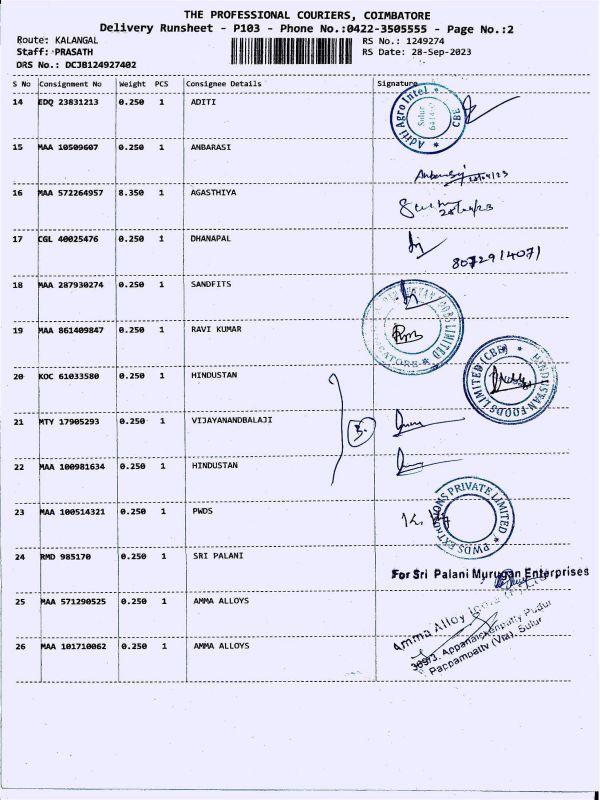 THE PROFESSIONAL COURIERS, COIMBATORE
Delivery Runsheet - P103 - Phone No.:0422-3505555 - Page No.:2
Route: KALANGAL
Staff: PRASATH
DRS No.: DCJB124927402
RS No.: 1249274
RS Date: 28-Sep-2023
S No Consignment No Weight PCS Consignee Details Signature
14 EDQ 23831213 0.250 1 ADITI
Aditi Agro Intel * CBE *
Sulur
15 MAA 10509607 0.250 1 ANBARASI
16 MAA 572264957 8.350 1 AGASTHIYA
17 CGL 40025476 0.250 1 DHANAPAL
8072914071
18 MAA 287930274 0.250 1 SANDFITS
19 MAA 861409847 0.250 1 RAVI KUMAR
FOODS LIMITED
20 KOC 61033580 0.250 1 HINDUSTAN
HINDUSTAN FOODS LIMITED (CBE)
21 MTY 17905293 0.250 1 VIJAYANANDBALAJI
3.
22 MAA 100981634 0.250 1 HINDUSTAN
23 MAA 100514321 0.250 1 PWDS
PWDS EXTRUSIONS PRIVATE LIMITED
24 RMD 985170 0.250 1 SRI PALANI
For Sri Palani Murugan Enterprises
25 MAA 571290525 0.250 1 AMMA ALLOYS
Amma Alloy
26 MAA 101710062 0.250 1 AMMA ALLOYS
Appanaickenpatty Pudur
Pappampatty (Via), Sulur